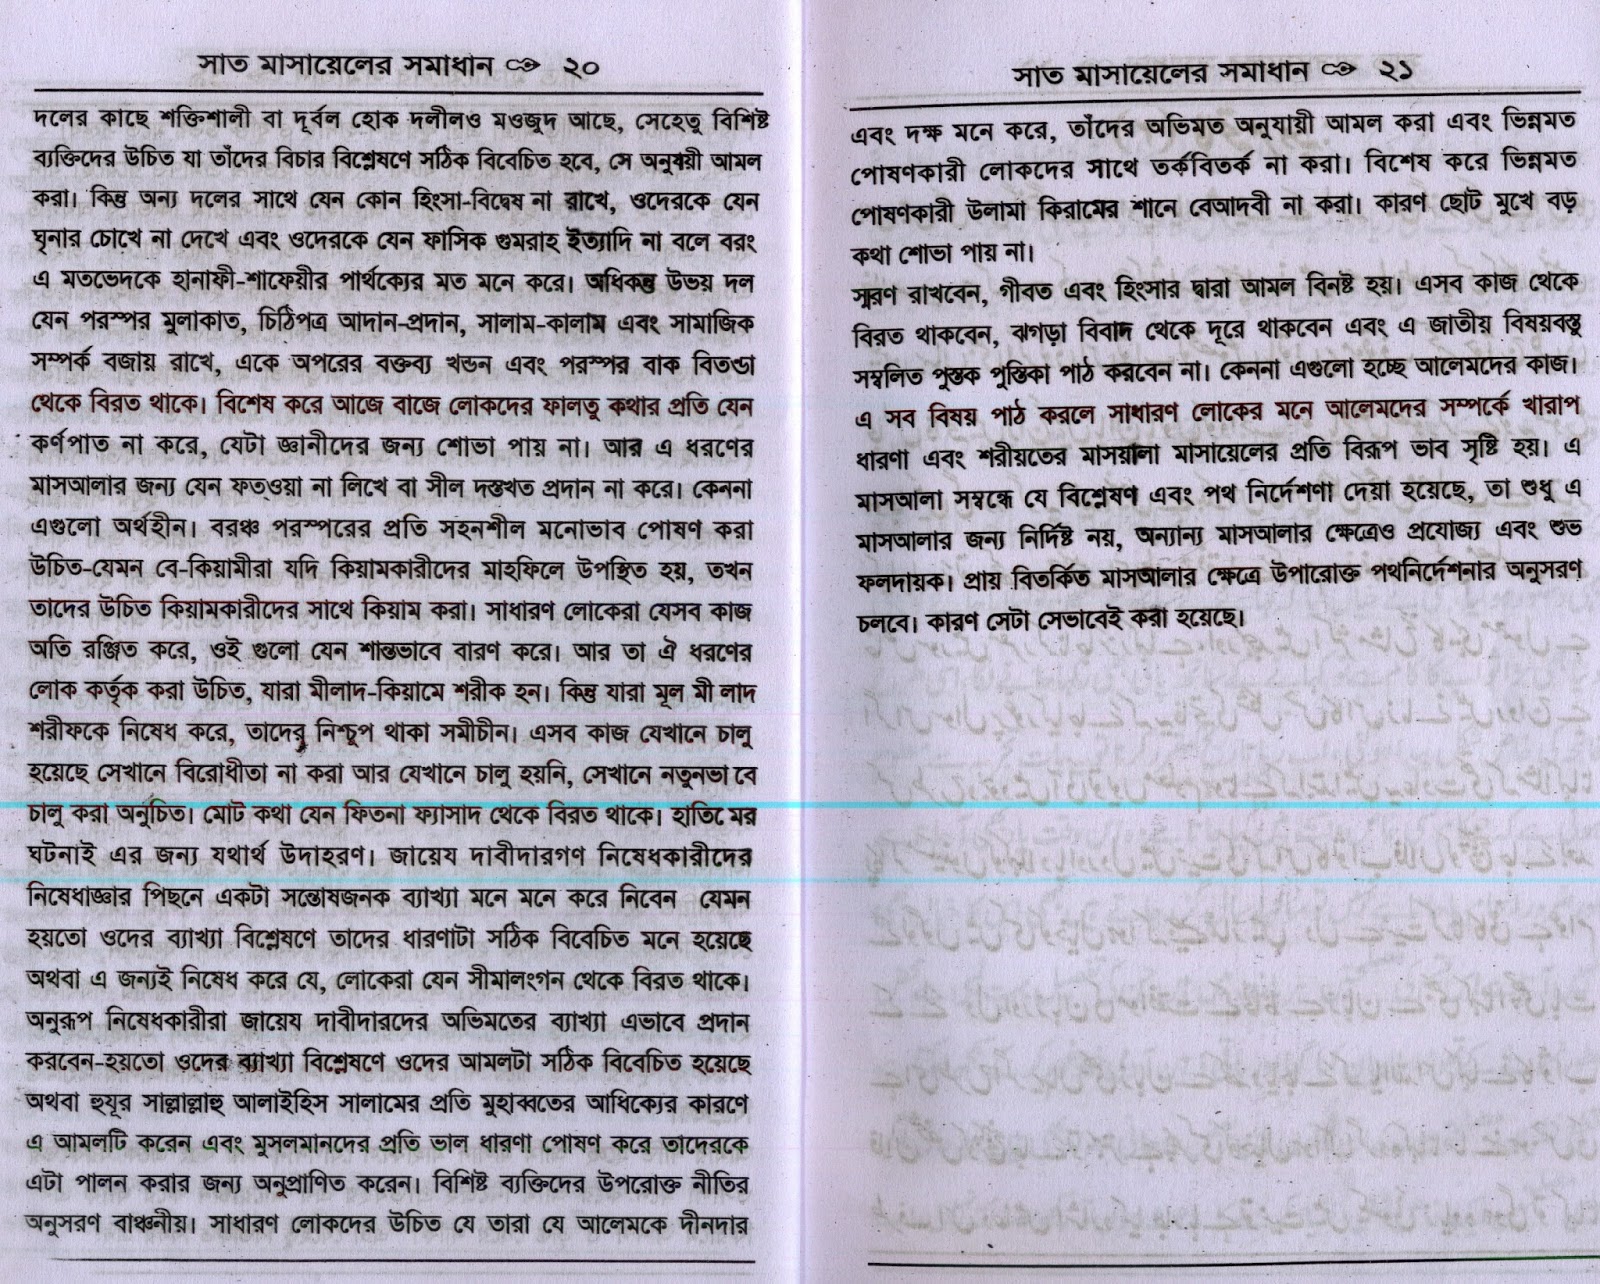 সাত মাসায়েলের সমাধান ২০
দলের কাছে শক্তিশালী বা দূর্বল হোক দলীলও মওজুদ আছে, সেহেতু বিশিষ্ট
ব্যক্তিদের উচিত যা তাঁদের বিচার বিশ্লেষণে সঠিক বিবেচিত হবে, সে অনুযয়ী আমল
করা। কিন্তু অন্য দলের সাথে যেন কোন হিংসা-বিদ্বেষ না রাখে, ওদেরকে যেন
ঘৃনার চোখে না দেখে এবং ওদেরকে যেন ফাসিক গুমরাহ ইত্যাদি না বলে বরং
এ মতভেদকে হানাফী-শাফেয়ীর পার্থক্যের মত মনে করে। অধিকন্তু উভয় দল
যেন পরস্পর মুলাকাত, চিঠিপত্র আদান-প্রদান, সালাম-কালাম এবং সামাজিক
সম্পর্ক বজায় রাখে, একে অপরের বক্তব্য খন্ডন এবং পরস্পর বাক বিতন্ডা
থেকে বিরত থাকে। বিশেষ করে আজে বাজে লোকদের ফালতু কথার প্রতি যেন
কর্ণপাত না করে, যেটা জ্ঞানীদের জন্য শোভা পায় না। আর এ ধরণের
মাসআলার জন্য যেন ফত্ওয়া না লিখে বা সীল দস্তখত প্রদান না করে। কেননা
এগুলো অর্থহীন। বরঞ্চ পরস্পরের প্রতি সহনশীল মনোভাব পোষণ করা
উচিত-যেমন বে-কিয়ামীরা যদি কিয়ামকারীদের মাহফিলে উপস্থিত হয়, তখন
তাদের উচিত কিয়ামকারীদের সাথে কিয়াম করা। সাধারণ লোকেরা যেসব কাজ
অতি রঞ্জিত করে, ওই গুলো যেন শান্তভাবে বারণ করে। আর তা ঐ ধরণের
লোক কর্তৃক করা উচিত, যারা মীলাদ-কিয়ামে শরীক হন। কিন্তু যারা মূল মী লাদ
শরীফকে নিষেধ করে, তাদের নিশ্চুপ থাকা সমীচীন। এসব কাজ যেখানে চালু
হয়েছে সেখানে বিরোধীতা না করা আর যেখানে চালু হয়নি, সেখানে নতুনভা বে
চালু করা অনুচিত। মোট কথা যেন ফিতনা ফ্যাসাদ থেকে বিরত থাকে। হাতিমের
ঘটনাই এর জন্য যথার্থ উদাহরণ। জায়েয দাবীদারগণ নিষেধকারীদের
নিষেধাজ্ঞার পিছনে একটা সন্তোষজনক ব্যাখ্যা মনে মনে করে নিবেন যেমন
হয়তো ওদের ব্যাখ্যা বিশ্লেষণে তাদের ধারণাটা সঠিক বিবেচিত মনে হয়েছে
অথবা এ জন্যই নিষেধ করে যে, লোকেরা যেন সীমালংগন থেকে বিরত থাকে।
অনুরূপ নিষেধকারীরা জায়েয দাবীদারদের অভিমতের ব্যাখ্যা এভাবে প্রদান
করবেন-হয়তো ওদের ব্যাখ্যা বিশ্লেষণে ওদের আমলটা সঠিক বিবেচিত হয়েছে
অথবা হুযূর সাল্লাল্লাহু আলাইহিস সালামের প্রতি মুহাব্বতের আধিক্যের কারণে
এ আমলটি করেন এবং মুসলমানদের প্রতি ভাল ধারণা পোষণ করে তাদেরকে
এটা পালন করার জন্য অনুপ্রাণিত করেন। বিশিষ্ট ব্যক্তিদের উপরোক্ত নীতির
অনুসরণ বাঞ্চনীয়। সাধারণ লোকদের উচিত যে তারা যে আলেমকে দীনদার
সাত মাসায়েলের সমাধান ২১
এবং দক্ষ মনে করে, তাঁদের অভিমত অনুযায়ী আমল করা এবং ভিন্নমত
পোষণকারী লোকদের সাথে তর্কবিতর্ক না করা। বিশেষ করে ভিন্নমত
পোষণকারী উলামা কিরামের শানে বেআদবী না করা। কারণ ছোট মুখে বড়
কথা শোভা পায় না।
স্মরণ রাখবেন, গীবত এবং হিংসার দ্বারা আমল বিনষ্ট হয়। এসব কাজ থেকে
বিরত থাকবেন, ঝগড়া বিবাদ থেকে দূরে থাকবেন এবং এ জাতীয় বিষয়বস্তু
সম্বলিত পুস্তক পুস্তিকা পাঠ করবেন না। কেননা এগুলো হচ্ছে আলেমদের কাজ।
এ সব বিষয় পাঠ করলে সাধারণ লোকের মনে আলেমদের সম্পর্কে খারাপ
ধারণা এবং শরীয়তের মাসয়ালা মাসায়েলের প্রতি বিরূপ ভাব সৃষ্টি হয়। এ
মাসআলা সম্বন্ধে যে বিশ্লেষণ এবং পথ নির্দেশণা দেয়া হয়েছে, তা শুধু এ
মাসআলার জন্য নির্দিষ্ট নয়, অন্যান্য মাসআলার ক্ষেত্রেও প্রযোজ্য এবং শুভ
ফলদায়ক। প্রায় বিতর্কিত মাসআলার ক্ষেত্রে উপারোক্ত পথনির্দেশনার অনুসরণ
চলবে। কারণ সেটা সেভাবেই করা হয়েছে।